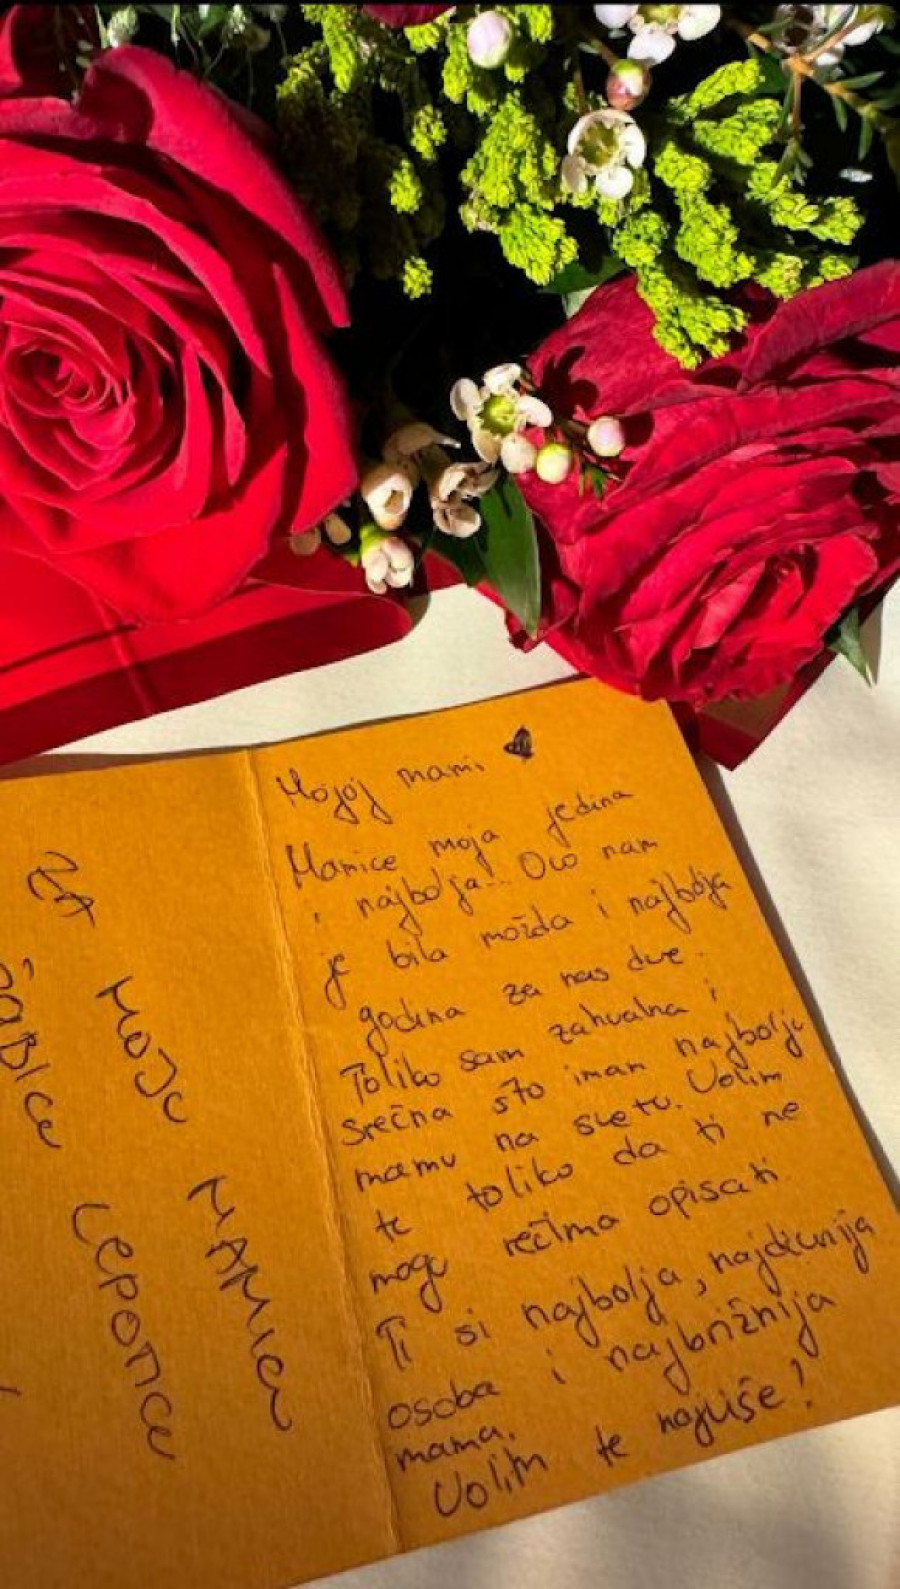 ZA MOJE MAMICE
ŽABICE LEPOTICE
Mojoj mami
Mamice moja jedina
i najbolja... Ovo nam
je bila možda i najbolja
godina za nas dve.
Toliko sam zahvalna i
srećna što imam najbolju
mamu na svetu. Volim
te toliko da ti ne
mogu rečima opisati.
Ti si najbolja, najdivnija
osoba i najbrižnija
mama.
Volim te najviše!